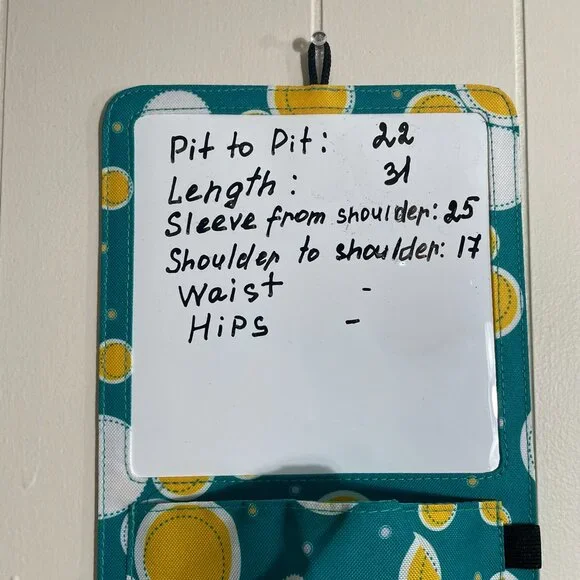 Pit to Pit: 22
Length: 31
Sleeve from shoulder: 25
Shoulder to shoulder: 17
Waist -
Hips -